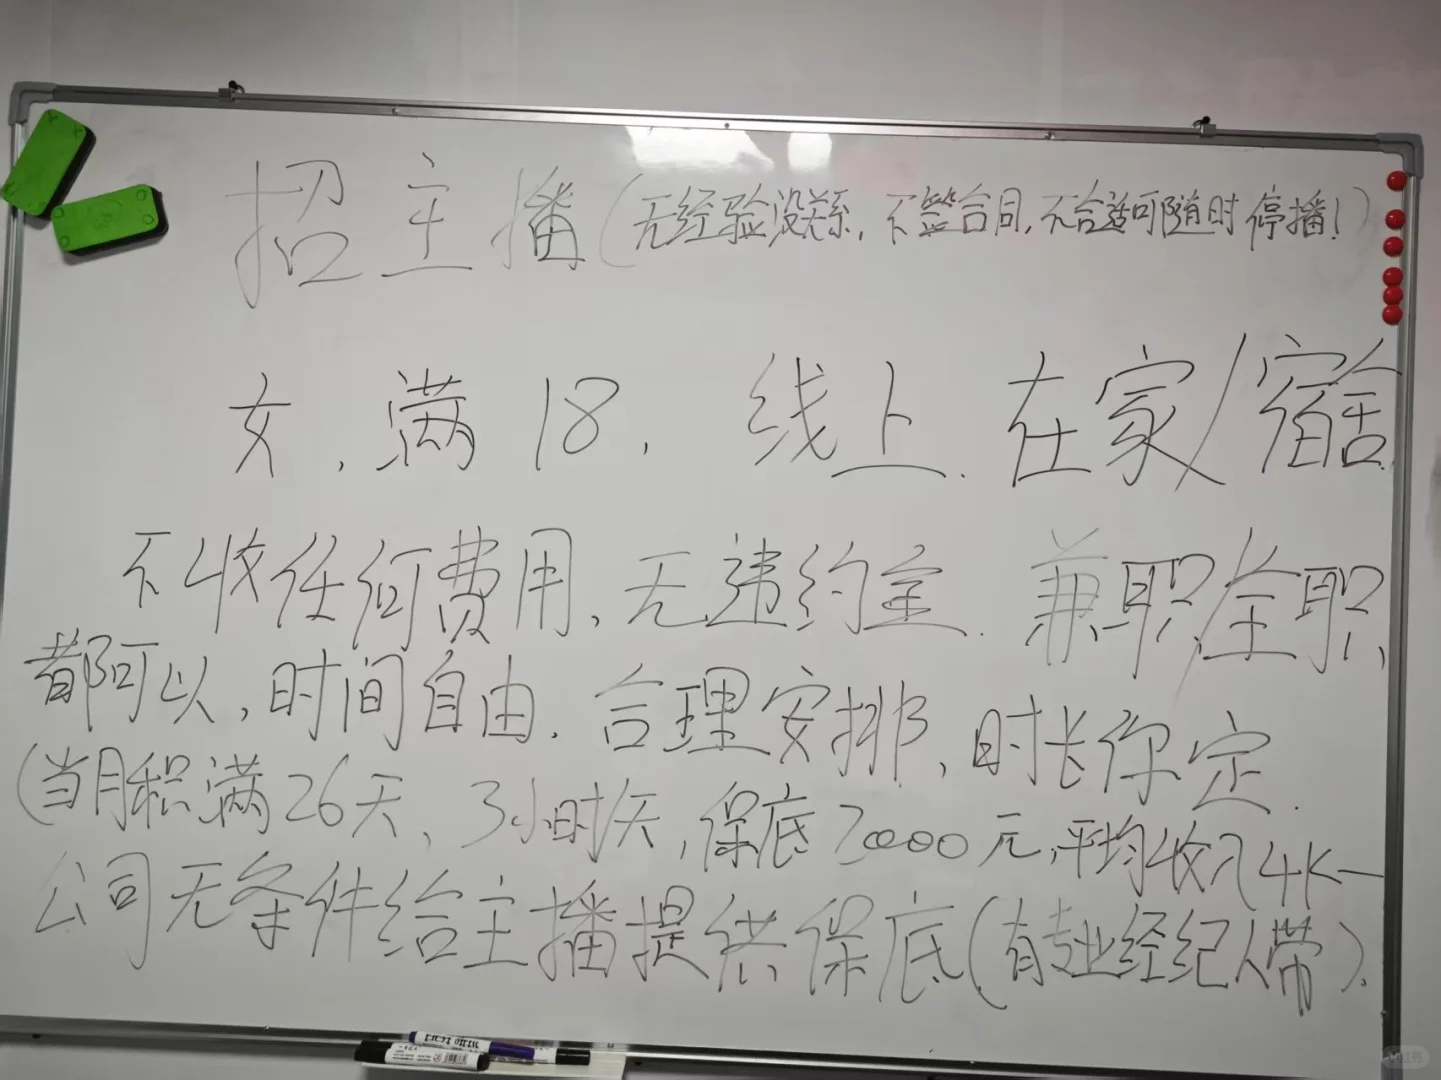 招主播(无经验没关系,不签合同,不合适可随时停播!)
女,满18,线上.在家/宿舍.
不收任何费用,无违约金.兼职/全职
都可以,时间自由.合理安排,时长你定.
(当月积满26天、3小时/天,保底2000元,平均收入4K一
公司无条件给主播提供保底(有专业经纪人带).